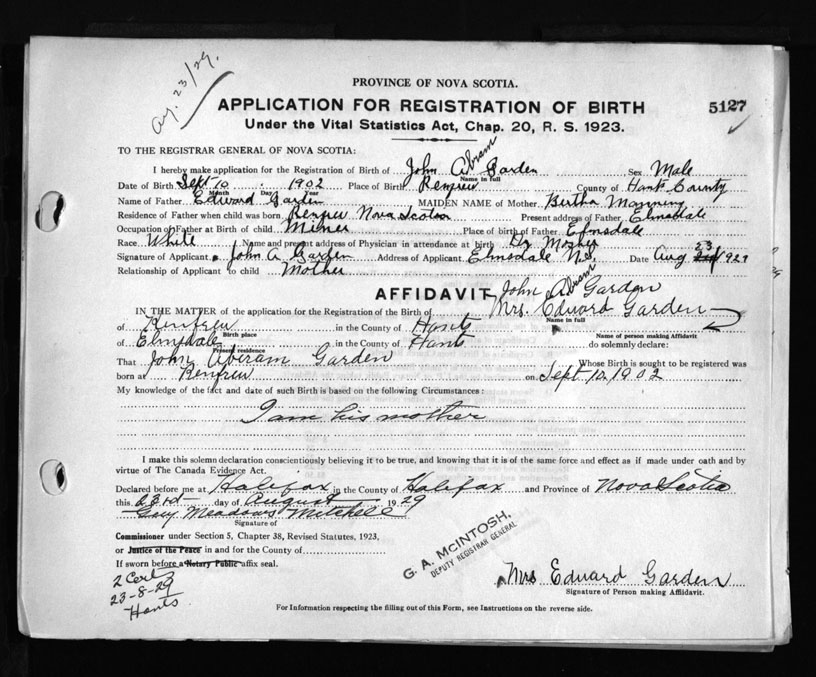 Aug. 23/29.
PROVINCE OF NOVA SCOTIA.
APPLICATION FOR REGISTRATION OF BIRTH 5127
Under the Vital Statistics Act, Chap. 20, R. S. 1923.
TO THE REGISTRAR GENERAL OF NOVA SCOTIA:
I hereby make application for the Registration of Birth of John Abram Garden Sex Male
Name in full
Date of Birth Sept 10 1902 Place of Birth Renfrew County of Hants County
Month Day Year
Name of Father Edward Garden MAIDEN NAME of Mother Bertha Manning
Residence of Father when child was born Renfrew Nova Scotia Present address of Father Elmsdale
Occupation of Father at Birth of child Miner Place of birth of Father Elmsdale
Race White Name and present address of Physician in attendance at birth Dr Mosher
Signature of Applicant John A Garden Address of Applicant Elmsdale N.S. Date Aug 23 1929
Relationship of Applicant to child Mother
AFFIDAVIT John Abram Garden
IN THE MATTER of the application for the Registration of the Birth of Mrs. Edward Garden
Name in full
of Renfrew in the County of Hants
Birth place Name of person making Affidavit
of Elmsdale in the County of Hants do solemnly declare:
Present residence
That John Aberam Garden Whose Birth is sought to be registered was
born at Renfrew on Sept 10 1902
My knowledge of the fact and date of such Birth is based on the following Circumstances:
I am his mother
I make this solemn declaration conscientiously believing it to be true, and knowing that it is of the same force and effect as if made under oath and by
virtue of The Canada Evidence Act.
Declared before me at Halifax in the County of Halifax and Province of Nova Scotia
this 23rd day of August 1929
Guy Meadows Mitchell
Signature of
Commissioner under Section 5, Chapter 38, Revised Statutes, 1923,
or Justice of the Peace in and for the County of
If sworn before a Notary Public affix seal.
G. A. McINTOSH,
DEPUTY REGISTRAR GENERAL
2 Cert
23-8-29
Hants
Mrs Edward Garden
Signature of Person making Affidavit.
For Information respecting the filling out of this Form, see Instructions on the reverse side.